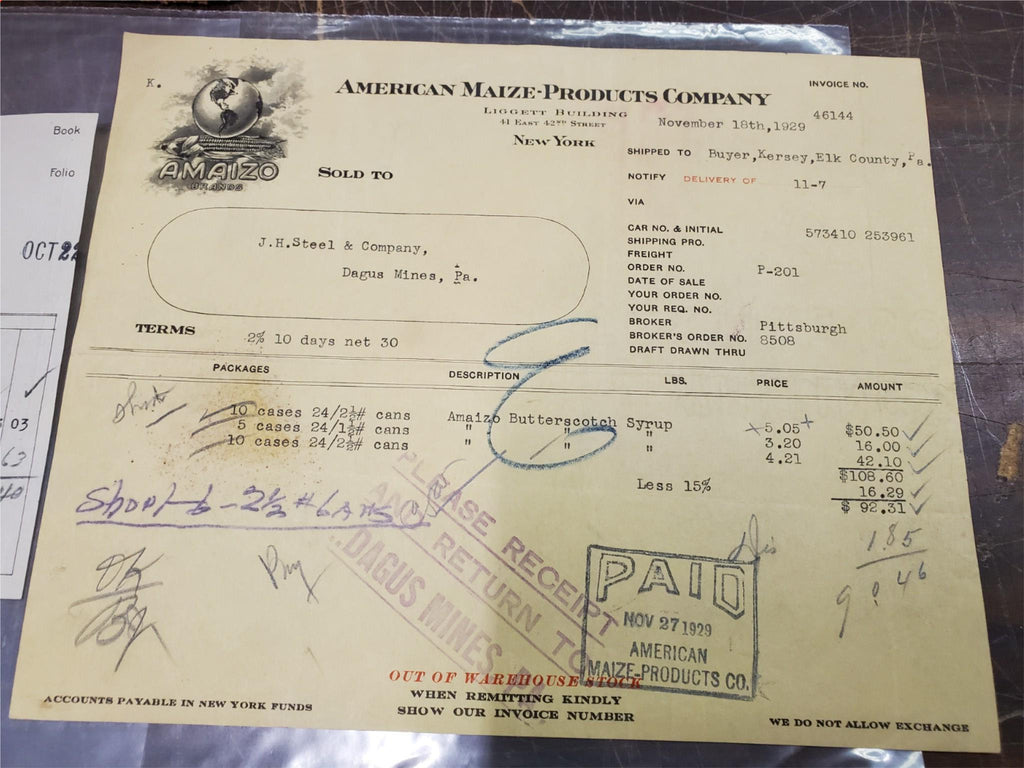 Book
Folio
OCT 22
03
63
K.
AMAIZO
BRANDS
AMERICAN MAIZE-PRODUCTS COMPANY
LIGGETT BUILDING
41 EAST 42ND STREET
NEW YORK
November 18th,1929
INVOICE NO.
46144
SOLD TO
J.H.Steel & Company,
Dagus Mines, Pa.
SHIPPED TO Buyer,Kersey,Elk County,Pa.
NOTIFY DELIVERY OF 11-7
VIA
CAR NO. & INITIAL 573410 253961
SHIPPING PRO.
FREIGHT
ORDER NO. P-201
DATE OF SALE
YOUR ORDER NO.
YOUR REQ. NO.
BROKER Pittsburgh
BROKER'S ORDER NO. 8508
DRAFT DRAWN THRU
TERMS 2% 10 days net 30
PACKAGES DESCRIPTION LBS. PRICE AMOUNT
10 cases 24/2½# cans Amaizo Butterscotch Syrup 5.05 $50.50
5 cases 24/1½# cans " " " 3.20 16.00
10 cases 24/2½# cans " " " 4.21 42.10
$108.60
Less 15% 16.29
$ 92.31
Short-6-2½#cans
Dis 1.85
90.46
OK
PLEASE RECEIPT
AND RETURN TO
DAGUS MINES, PA.
PAID
NOV 27 1929
AMERICAN
MAIZE-PRODUCTS CO.
OUT OF WAREHOUSE STOCK
WHEN REMITTING KINDLY
SHOW OUR INVOICE NUMBER
ACCOUNTS PAYABLE IN NEW YORK FUNDS
WE DO NOT ALLOW EXCHANGE